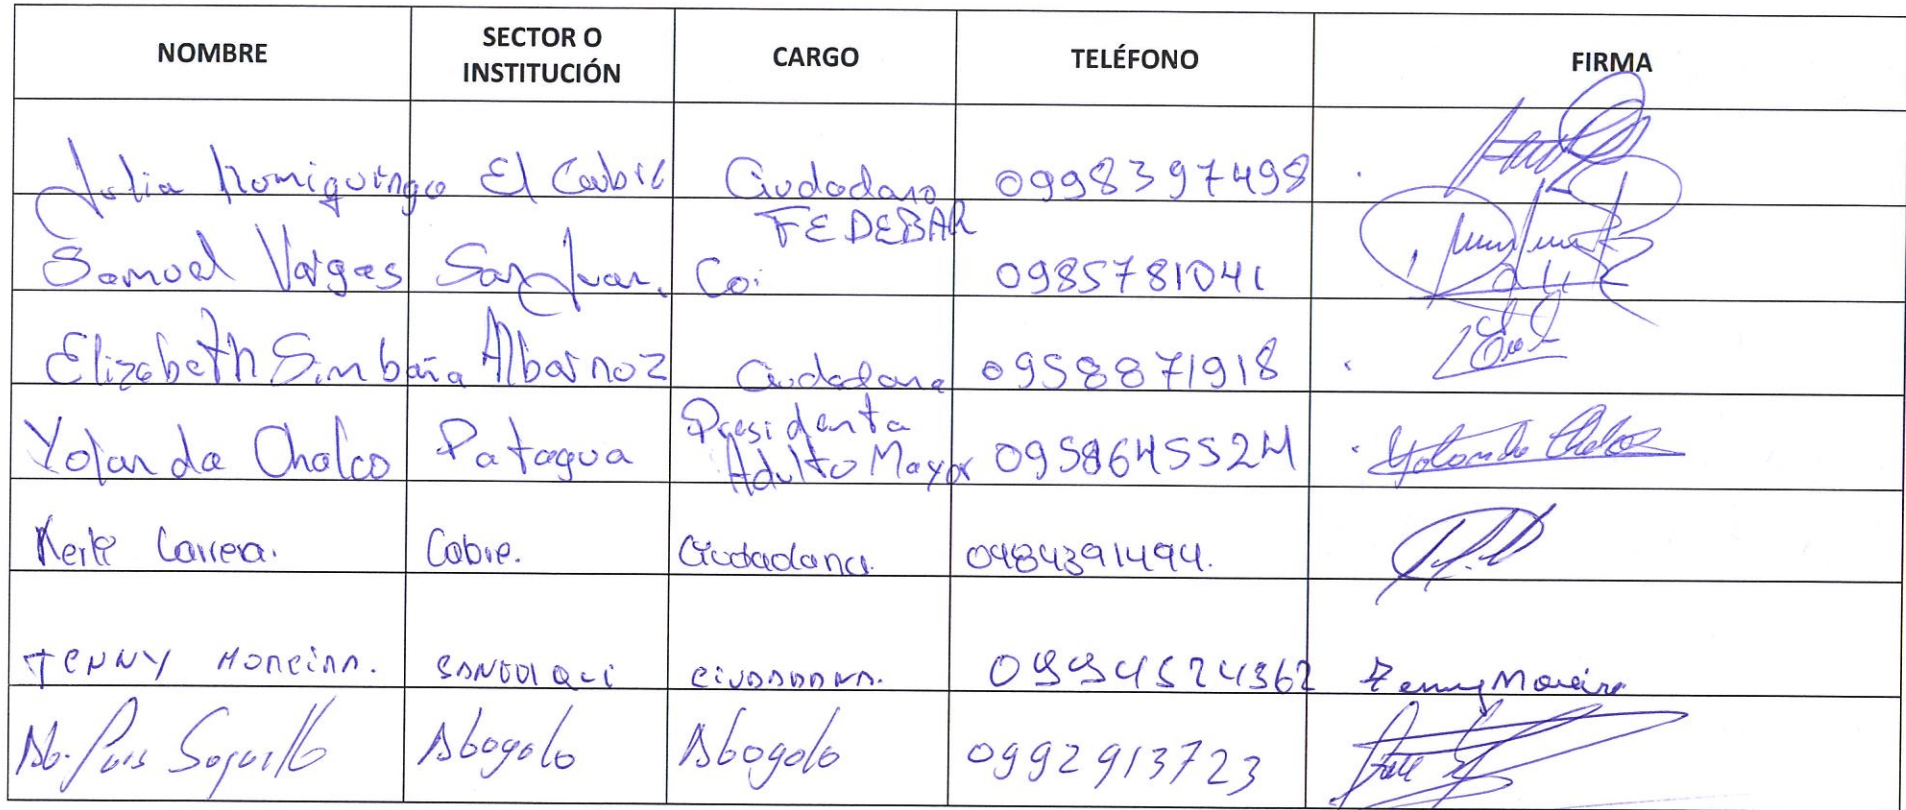 NOMBRE SECTOR O INSTITUCIÓN CARGO TELÉFONO FIRMA
Julia Ñomiguinga El Cabil Ciudadano 0998397498
Samuel Vargas San Juan. Co: FEDEBAR 0985781041
Elizabeth Simbaña Albornoz Ciudadana 0958871918
Yolanda Chalco Patagua Presidenta Adulto Mayor 0958645524 Yolanda Chalco
Carrera. Cobre. Ciudadana. 0984391494.
JENNY MOREIRA. SANGOLQUI CIUDADANA. 0994524362 Jenny Moreira
Ab. Luis Soquillo Abogado Abogado 0992913723